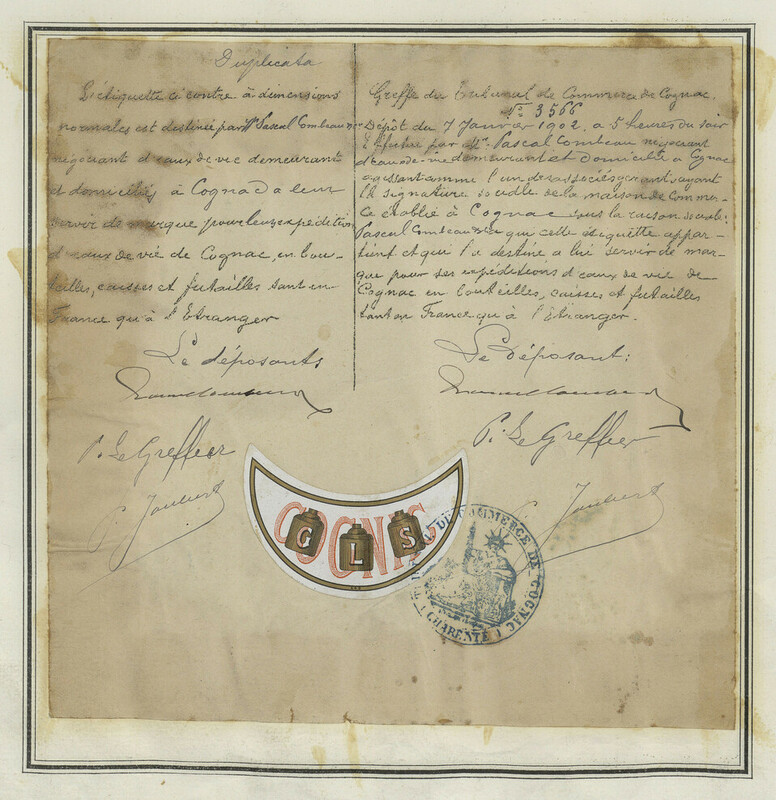 Duplicata
L'étiquette ci contre à dimensions
normales est destinée par Mr Pascal Combeau
négociant d'eaux de vie demeurant
et domiciliés à Cognac a leur
servir de marque pour leurs expéditions
d'eaux de vie de Cognac, en bou-
teilles, caisses et futailles tant en
France qu'à l'Etranger
Le déposants
P. Le Greffier
P. Joubert
Greffe du Tribunal de Commerce de Cognac.
No 3566
Dépôt du 7 Janvier 1902, a 5 heures du soir
Effectué par Mr. Pascal Combeau négociant
d'eau de vie demeurant et domicilié à Cognac
agissant comme l'un des associés gérant ayant
la signature sociale de la maison de Commer-
ce établie à Cognac sous la raison sociale
Pascal Combeau & Cie que cette étiquette appar-
tient et qu'il a destiné a lui servir de mar-
que pour ses expéditions d'eaux de vie de
Cognac en bouteilles, caisses et futailles
tant en France qu'à l'Etranger.
Le déposant:
P. Le Greffier
P. Joubert
COGNAC
G L S
TRIBUNAL DE COMMERCE DE COGNAC
(CHARENTE)